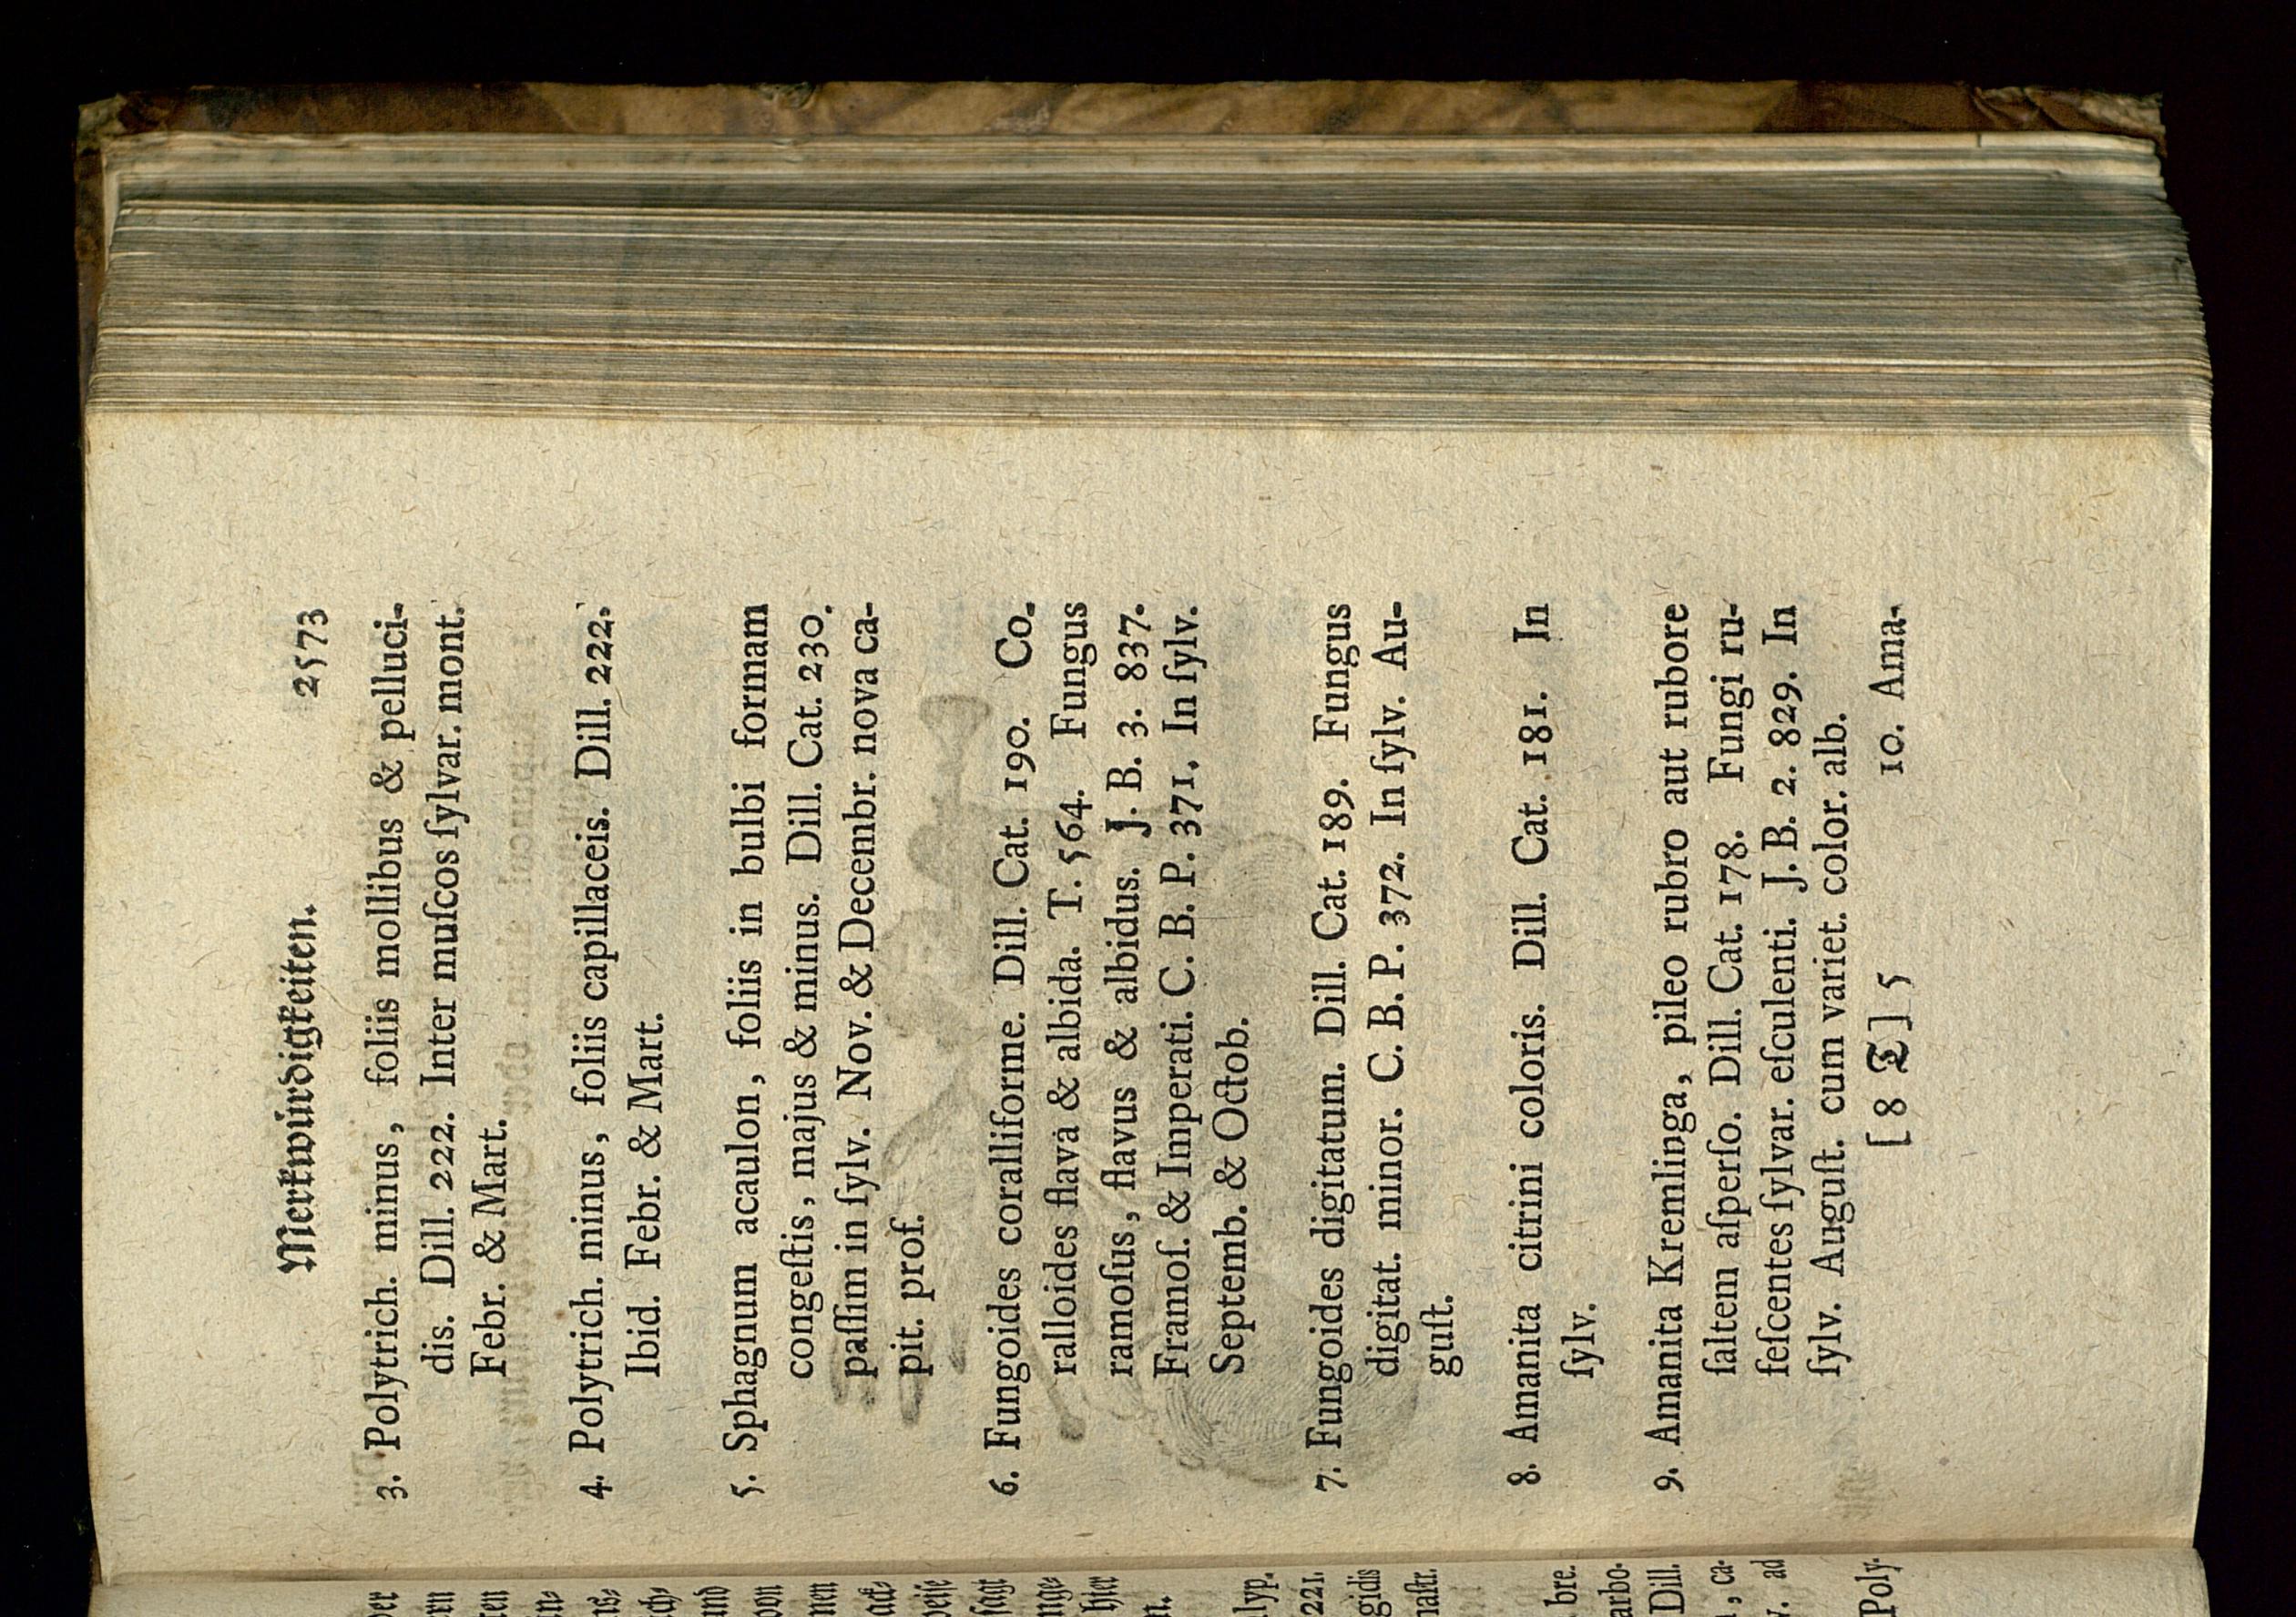 Merkwürdigkeiten. 2573
3. Polytrich. minus, foliis mollibus & pelluci-
dis. Dill. 222. Inter muſcos ſylvar. mont.
Febr. & Mart.
4. Polytrich. minus, foliis capillaceis. Dill. 222.
Ibid. Febr. & Mart.
5. Sphagnum acaulon, foliis in bulbi formam
congeſtis, majus & minus. Dill. Cat. 230.
paſſim in ſylv. Nov. & Decembr. nova ca-
pit. prof.
6. Fungoides coralliforme. Dill. Cat. 190. Co-
ralloides flava & albida. T. 564. Fungus
ramoſus, flavus & albidus. J. B. 3. 837.
Framoſ. & Imperati. C. B. P. 371. In ſylv.
Septemb. & Octob.
7. Fungoides digitatum. Dill. Cat. 189. Fungus
digitat. minor. C. B. P. 372. In ſylv. Au-
guſt.
8. Amanita citrini coloris. Dill. Cat. 181. In
ſylv.
9. Amanita Kremlinga, pileo rubro aut rubore
ſaltem aſperſo. Dill. Cat. 178. Fungi ru-
feſcentes ſylvar. eſculenti. J. B. 2. 829. In
ſylv. Auguſt. cum variet. color. alb.
[8 T] 5 10. Ama-